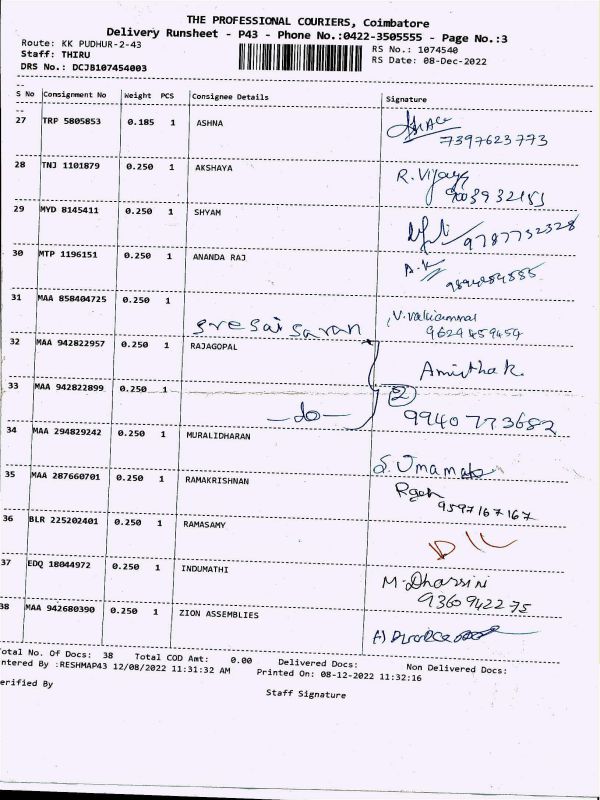 THE PROFESSIONAL COURIERS, Coimbatore
Delivery Runsheet - P43 - Phone No.:0422-3505555 - Page No.:3
Route: KK PUDHUR-2-43 RS No.: 1074540
Staff: THIRU RS Date: 08-Dec-2022
DRS No.: DCJ8107454003
S No Consignment No Weight PCS Consignee Details Signature
27 TRP 5805853 0.185 1 ASHNA
7397623773
28 TNJ 1101879 0.250 1 AKSHAYA R. Vijaya
9003932151
29 MYD 8145411 0.250 1 SHYAM
9787732328
30 MTP 1196151 0.250 1 ANANDA RAJ A.K
31 MAA 858404725 0.250 1 V. Valliammal
sresai saran 9629459459
32 MAA 942822957 0.250 1 RAJAGOPAL Amirtha k
33 MAA 942822899 0.250 1 2
-do- 9940773682
34 MAA 294829242 0.250 1 MURALIDHARAN S. Umamah
35 MAA 287660701 0.250 1 RAMAKRISHNAN
9597167167
36 BLR 225202401 0.250 1 RAMASAMY
37 EDQ 18044972 0.250 1 INDUMATHI M. Dharsini
9360942275
38 MAA 942680390 0.250 1 ZION ASSEMBLIES
otal No. Of Docs: 38 Total COD Amt: 0.00 Delivered Docs: Non Delivered Docs:
ntered By :RESHMAP43 12/08/2022 11:31:32 AM Printed On: 08-12-2022 11:32:16
erified By Staff Signature